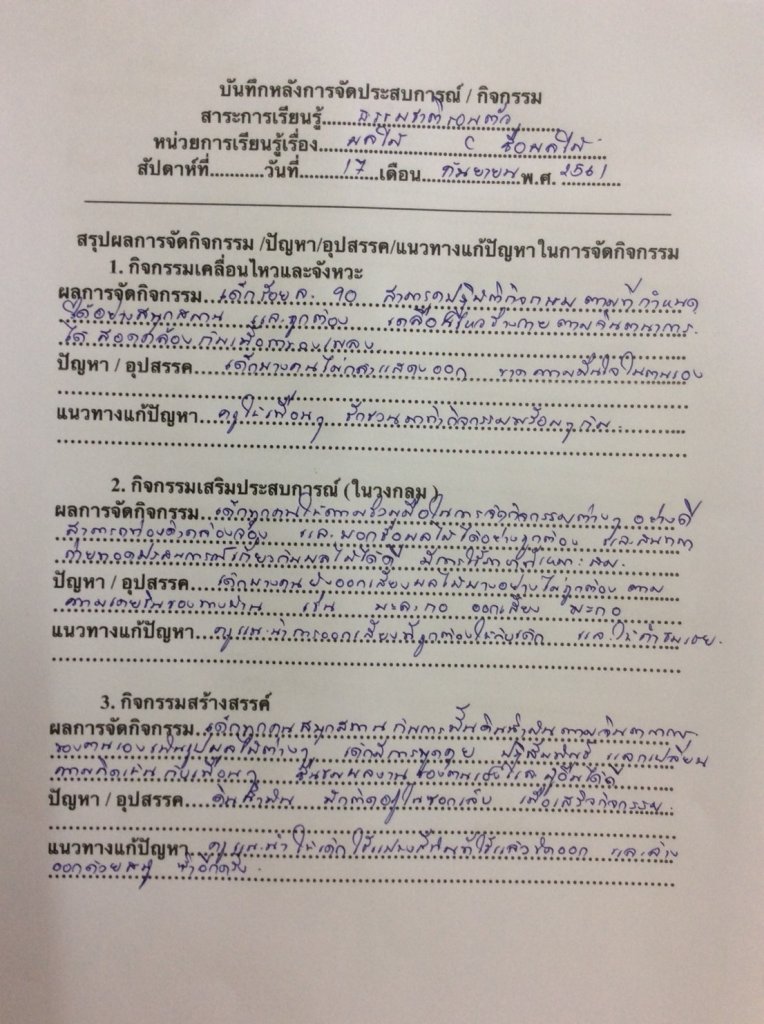 บันทึกหลังการจัดประสบการณ์ / กิจกรรม
สาระการเรียนรู้....ธรรมชาติรอบตัว
หน่วยการเรียนรู้เรื่อง....ผลไม้ ( ชื่อผลไม้
สัปดาห์ที่...........วันที่........17....เดือน...กันยายน พ.ศ. 2561
สรุปผลการจัดกิจกรรม /ปัญหา/อุปสรรค/แนวทางแก้ปัญหาในการจัดกิจกรรม
1. กิจกรรมเคลื่อนไหวและจังหวะ
ผลการจัดกิจกรรม...เด็กร้อยละ 90 สามารถปฏิบัติกิจกรรม ตามที่กำหนด
ได้อย่างสนุกสนาน และถูกต้อง เคลื่อนไหวร่างกายตามจินตนาการ
ได้สอดคล้องกับเนื้อร้องเพลง
ปัญหา / อุปสรรค...เด็กบางคนไม่กล้าแสดงออก ขาดความมั่นใจในตนเอง
แนวทางแก้ปัญหา...ครูให้เพื่อนๆ ชักชวนมาทำกิจกรรมพร้อมๆกัน
2. กิจกรรมเสริมประสบการณ์ (ในวงกลม )
ผลการจัดกิจกรรม...เด็กทุกคนให้ความร่วมมือในการทำกิจกรรมต่างๆ อย่างดี
สามารถท่องคำคล้องจอง และบอกชื่อผลไม้ได้อย่างถูกต้อง และสนทนา
ถ่ายทอดประสบการณ์เกี่ยวกับผลไม้ได้ดี มีการใช้ภาษาที่เหมาะสม
ปัญหา / อุปสรรค...เด็กบางคนยังออกเสียงผลไม้บางอย่างไม่ถูกต้อง ตาม
ความเคยชินของทางบ้าน เช่น มะละกอ ออกเสียง มะกอ
แนวทางแก้ปัญหา...ครูแนะนำการออกเสียงที่ถูกต้องให้กับเด็ก และให้คำชมเชย
3. กิจกรรมสร้างสรรค์
ผลการจัดกิจกรรม..เด็กทุกคนสนุกสนานกับการปั้นดินน้ำมันตามจินตนาการ
ของตนเองเป็นรูปผลไม้ต่างๆ เด็กมีการพูดคุย ปฏิสัมพันธ์ แลกเปลี่ยน
ความคิดเห็นกับเพื่อนๆ ชื่นชมผลงานของตนเองและผู้อื่นได้ดี
ปัญหา / อุปสรรค...ดินน้ำมัน มักติดอยู่ในซอกเล็บ เมื่อเสร็จกิจกรรม
แนวทางแก้ปัญหา...ครูแนะนำให้เด็กใช้แปรงสีฟันที่ใช้แล้วขัดออก และล้าง
ออกด้วยสบู่ ซ้ำอีกครั้ง